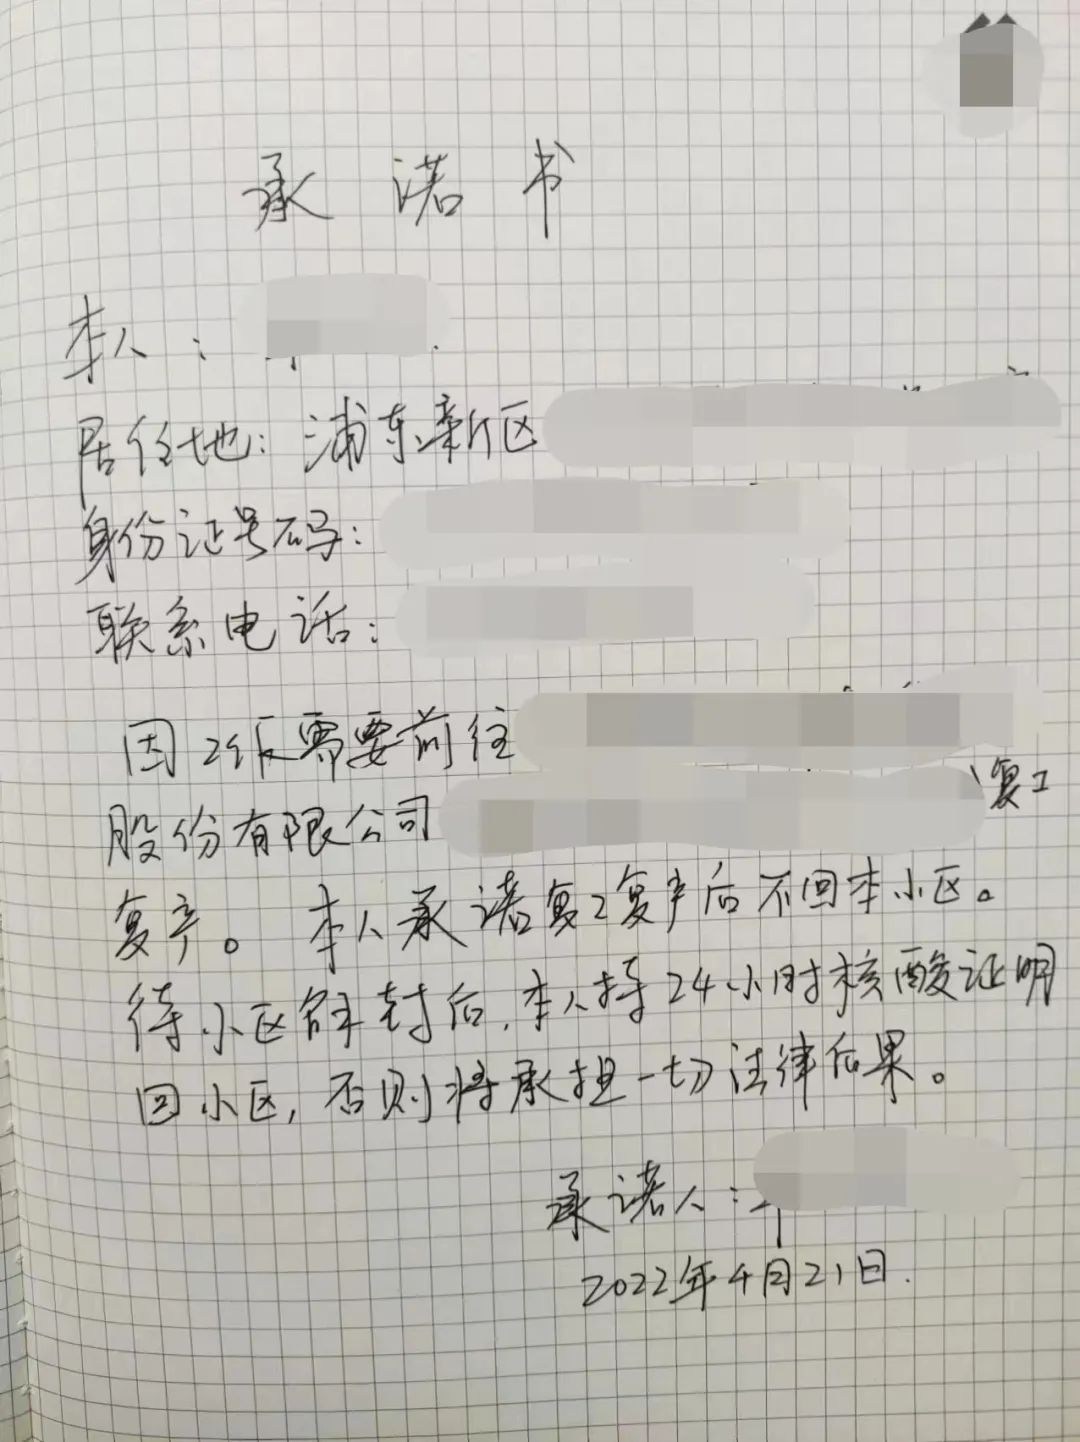 承诺书
本人：
居住地：浦东新区
身份证号码：
联系电话：
因工作需要前往
股份有限公司 复工
复产。本人承诺复工复产后不回本小区。
待小区解封后，本人持24小时核酸证明
回小区，否则将承担一切法律后果。
承诺人：
2022年4月21日.